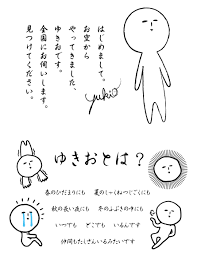 はじめまして。
お空から
やってきました、
ゆきおです。
全国にお伺いします。
見つけてください。
yukio
ゆきおとは？
春のひだまりにも 夏のしゃくねつじごくにも
秋の長い夜にも 冬のふぶきの中にも
いつでも どこでも いるんです
仲間もたくさんいるみたいです